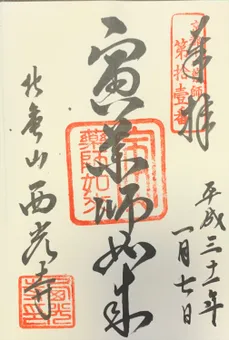 奉拝
第拾壹番
寅薬師如来
藥師如来
平成三十一年
一月七日
北亀山 西光寺